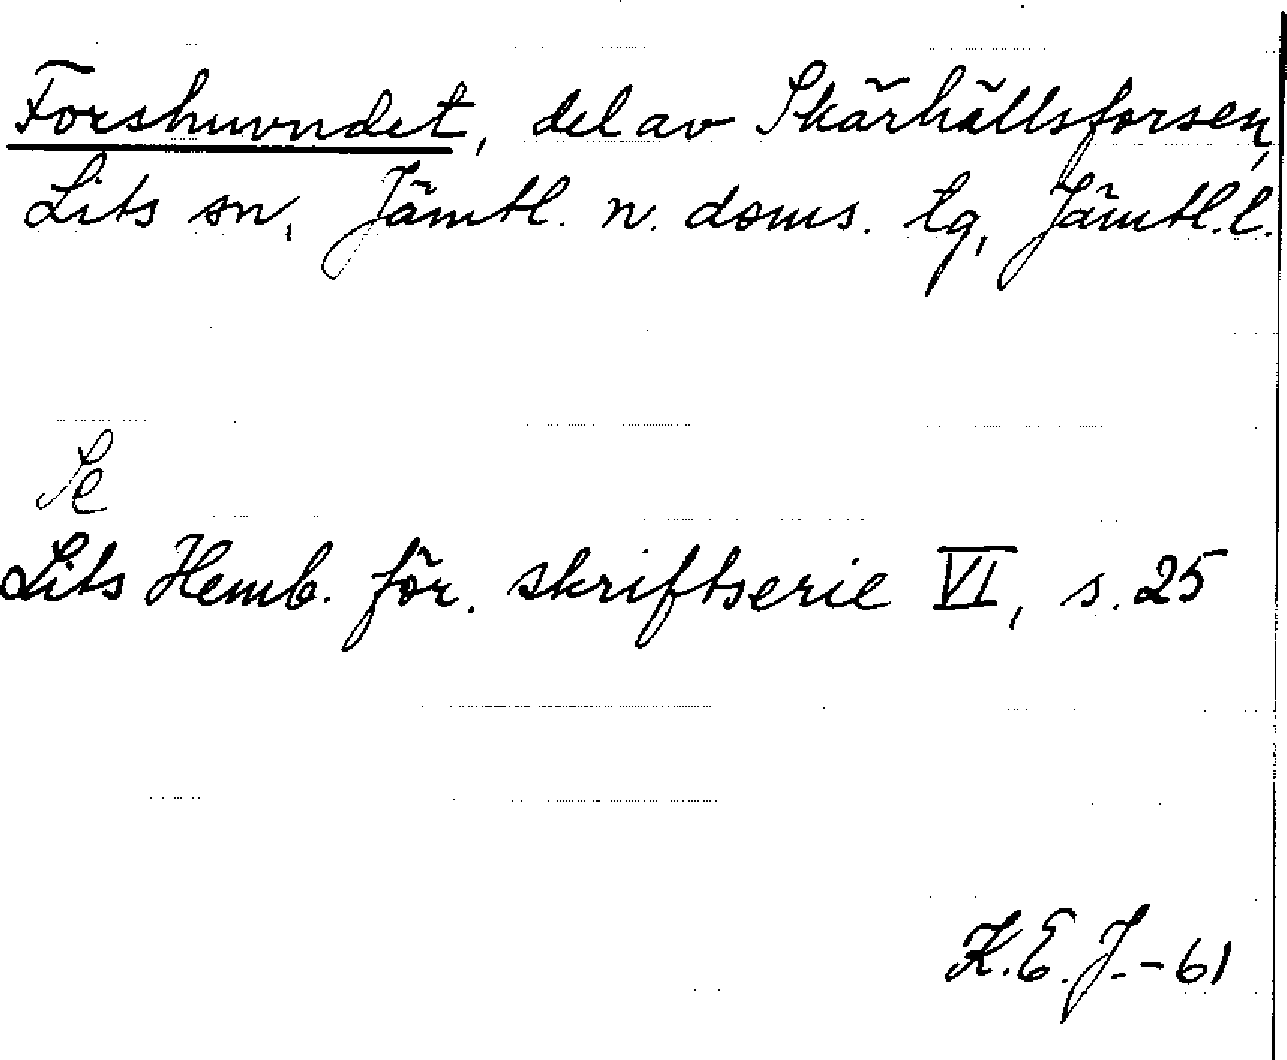 Forshuvudet, del av Skärhällsforsen,
Lits sn, Jämtl. n. doms. tg, Jämtl.l.
Se
Lits Hemb. för. skriftserie VI, s. 25
K.E.J.-61